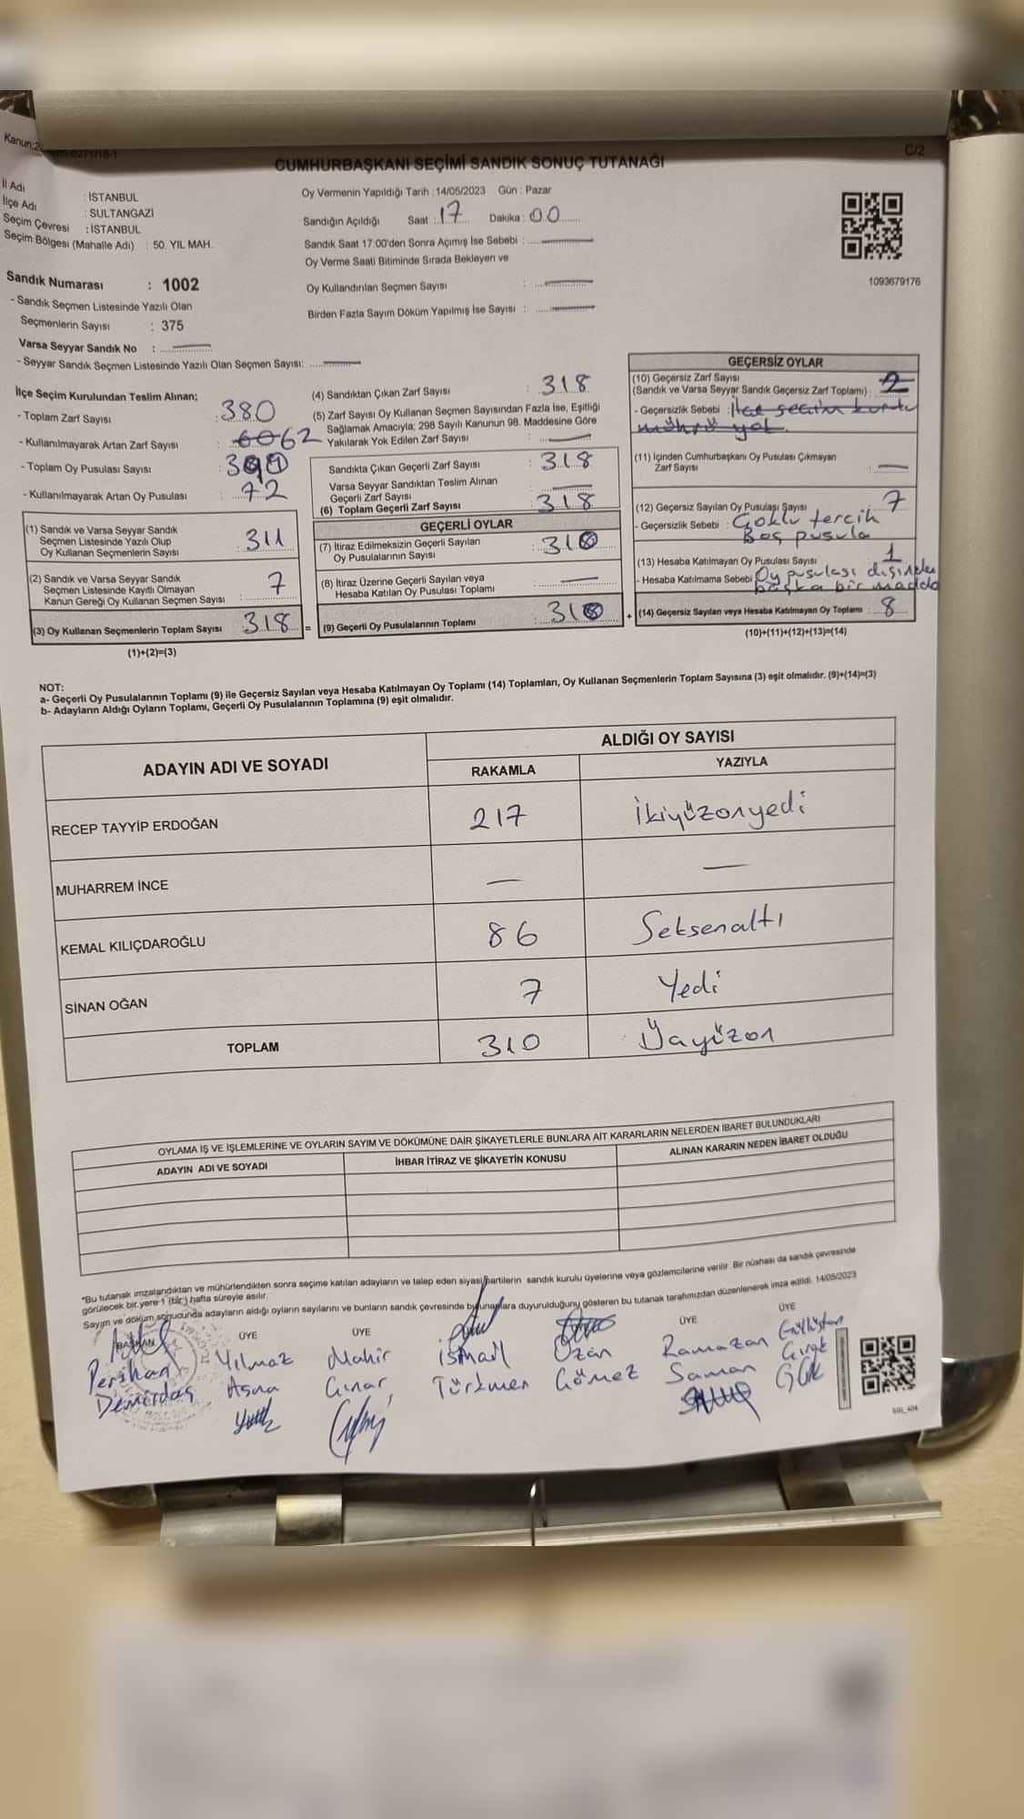 CUMHURBAŞKANI SEÇİMİ SANDIK SONUÇ TUTANAĞI
C/2
İl Adı : İSTANBUL
İlçe Adı : SULTANGAZİ
Seçim Çevresi : İSTANBUL
Seçim Bölgesi (Mahalle Adı) : 50. YIL MAH.
Sandık Numarası : 1002
- Sandık Seçmen Listesinde Yazılı Olan
Seçmenlerin Sayısı : 375
Varsa Seyyar Sandık No :
- Seyyar Sandık Seçmen Listesinde Yazılı Olan Seçmen Sayısı:
Oy Vermenin Yapıldığı Tarih :14/05/2023 Gün : Pazar
Sandığın Açıldığı Saat : 17 Dakika : 00
Sandık Saat 17:00'den Sonra Açımış İse Sebebi :
Oy Verme Saati Bitiminde Sırada Bekleyen ve
Oy Kullandırılan Seçmen Sayısı :
Birden Fazla Sayım Döküm Yapılmış İse Sayısı :
1093679176
İlçe Seçim Kurulundan Teslim Alınan;
- Toplam Zarf Sayısı : 380
- Kullanılmayarak Artan Zarf Sayısı : 62
- Toplam Oy Pusulası Sayısı :
- Kullanılmayarak Artan Oy Pusulası : 72
(1) Sandık ve Varsa Seyyar Sandık
Seçmen Listesinde Yazılı Olup
Oy Kullanan Seçmenlerin Sayısı : 311
(2) Sandık ve Varsa Seyyar Sandık
Seçmen Listesinde Kayıtlı Olmayan
Kanun Gereği Oy Kullanan Seçmen Sayısı : 7
(3) Oy Kullanan Seçmenlerin Toplam Sayısı 318 =
(1)+(2)=(3)
(4) Sandıktan Çıkan Zarf Sayısı : 318
(5) Zarf Sayısı Oy Kullanan Seçmen Sayısından Fazla İse, Eşitliği
Sağlamak Amacıyla; 298 Sayılı Kanunun 98. Maddesine Göre
Yakılarak Yok Edilen Zarf Sayısı :
Sandıkta Çıkan Geçerli Zarf Sayısı : 318
Varsa Seyyar Sandıktan Teslim Alınan
Geçerli Zarf Sayısı
(6) Toplam Geçerli Zarf Sayısı : 318
GEÇERLİ OYLAR
(7) İtiraz Edilmeksizin Geçerli Sayılan
Oy Pusulalarının Sayısı : 310
(8) İtiraz Üzerine Geçerli Sayılan veya
Hesaba Katılan Oy Pusulası Toplamı :
(9) Geçerli Oy Pusulalarının Toplamı : 310 +
GEÇERSİZ OYLAR
(10) Geçersiz Zarf Sayısı
(Sandık ve Varsa Seyyar Sandık Geçersiz Zarf Toplamı) : 2
- Geçersizlik Sebebi : İlçe seçim kurulu
mührü yok.
(11) İçinden Cumhurbaşkanı Oy Pusulası Çıkmayan
Zarf Sayısı :
(12) Geçersiz Sayılan Oy Pusulası Sayısı : 7
- Geçersizlik Sebebi : Çoklu tercih
Boş pusula
(13) Hesaba Katılmayan Oy Pusulası Sayısı : 1
- Hesaba Katılmama Sebebi : Oy pusulası dışından
başka bir madde
(14) Geçersiz Sayılan veya Hesaba Katılmayan Oy Toplamı : 8
(10)+(11)+(12)+(13)=(14)
NOT:
a- Geçerli Oy Pusulalarının Toplamı (9) ile Geçersiz Sayılan veya Hesaba Katılmayan Oy Toplamı (14) Toplamları, Oy Kullanan Seçmenlerin Toplam Sayısına (3) eşit olmalıdır. (9)+(14)=(3)
b- Adayların Aldığı Oyların Toplamı, Geçerli Oy Pusulalarının Toplamına (9) eşit olmalıdır.
ADAYIN ADI VE SOYADI
ALDIĞI OY SAYISI
RAKAMLA YAZIYLA
RECEP TAYYİP ERDOĞAN 217 İkiyüzonyedi
MUHARREM İNCE — —
KEMAL KILIÇDAROĞLU 86 Seksenaltı
SİNAN OĞAN 7 Yedi
TOPLAM 310 Üçyüzon
OYLAMA İŞ VE İŞLEMLERİNE VE OYLARIN SAYIM VE DÖKÜMÜNE DAİR ŞİKAYETLERLE BUNLARA AİT KARARLARIN NELERDEN İBARET BULUNDUKLARI
ADAYIN ADI VE SOYADI İHBAR İTİRAZ VE ŞİKAYETİN KONUSU ALINAN KARARIN NEDEN İBARET OLDUĞU
*Bu tutanak imzalandıktan ve mühürlendikten sonra seçime katılan adayların ve talep eden siyasi partilerin sandık kurulu üyelerine veya gözlemcilerine verilir. Bir nüshası da sandık çevresinde
görülecek bir yere 1 (bir) hafta süreyle asılır.
Sayım ve döküm sonucunda adayların aldığı oyların sayılarını ve bunların sandık çevresinde bulunanlara duyurulduğunu gösteren bu tutanak tarafımızdan düzenlenerek imza edildi. 14/05/2023
BAŞKAN ÜYE ÜYE ÜYE ÜYE
Perihan Yılmaz Mahir İsmail Ozan Ramazan
Demirdaş Çınar Türkmen Gömez Saman